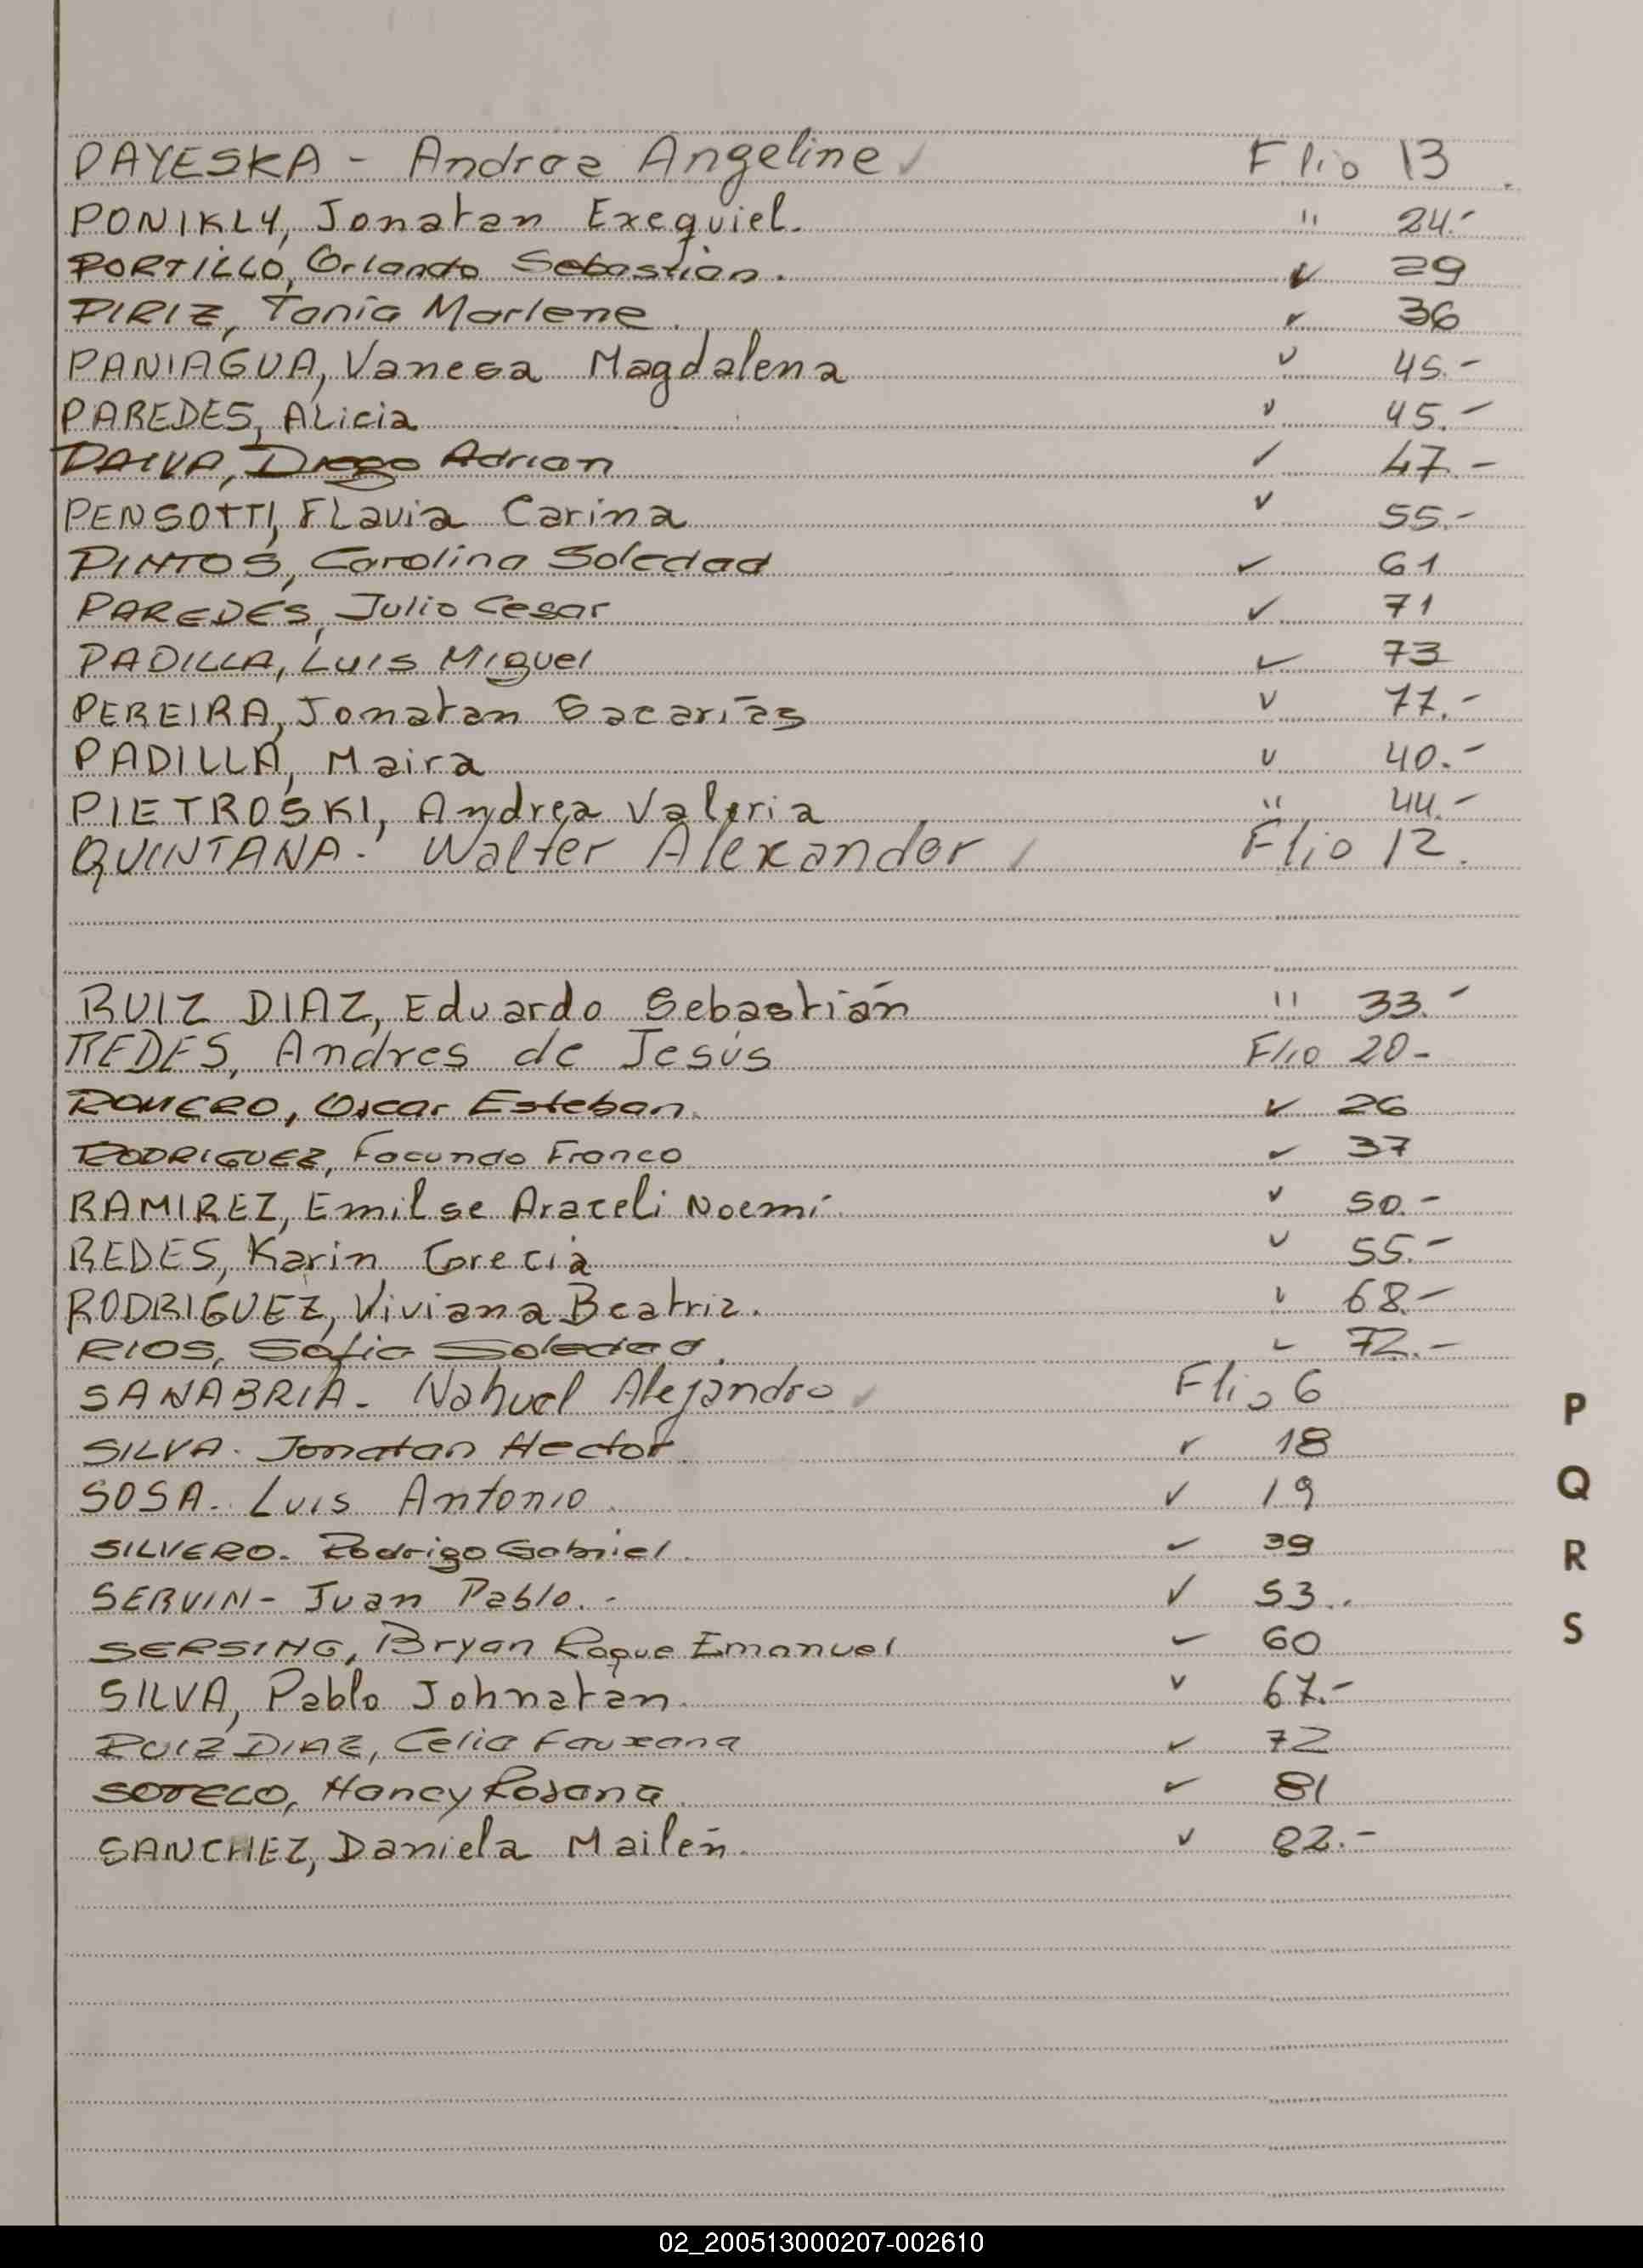 PAYESKA - Andrea Angeline ✓ Flio 13
PONIKLY, Jonatan Exequiel. " 24.-
PORTILLO, Orlando Sebastian. ✓ 29
PIRIZ, Tania Marlene. ✓ 36
PANIAGUA, Vanesa Magdalena ✓ 45.-
PAREDES, Alicia ✓ 45.-
PAIVA, Diego Adrian ✓ 47.-
PENSOTTI, Flavia Carina ✓ 55.-
PINTOS, Carolina Soledad ✓ 61
PAREDES, Julio Cesar ✓ 71
PADILLA, Luis Miguel ✓ 73
PEREIRA, Jonatan Sacarías ✓ 77.-
PADILLA, Maira ✓ 40.-
PIETROSKI, Andrea Valeria " 44.-
QUINTANA.- Walter Alexander ✓ Flio 12.
RUIZ DIAZ, Eduardo Sebastián " 33.-
REDES, Andres de Jesús Flio 20-
ROMERO, Oscar Esteban. ✓ 26
RODRIGUEZ, Facundo Franco ✓ 37
RAMIREZ, Emilse Araceli Noemí. ✓ 50.-
REDES, Karin Grecia ✓ 55.-
RODRIGUEZ, Viviana Beatriz. ✓ 68.-
RIOS, Sofia Soledad. ✓ 72.-
SANABRIA- Nahuel Alejandro ✓ Flio 6
SILVA. Jonatan Hector. ✓ 18
SOSA.- Luis Antonio. ✓ 19
SILVERO. Rodrigo Gabriel. ✓ 39
SERVIN- Juan Pablo.- ✓ 53..
SERSING, Bryan Roque Emanuel ✓ 60
SILVA, Pablo Johnatan. ✓ 67.-
RUIZ DIAZ, Celia 72
SOTELO, Nancy Rosana. ✓ 81
SANCHEZ, Daniela Mailén. ✓ 82.-
P
Q
R
S
02_200513000207-002610